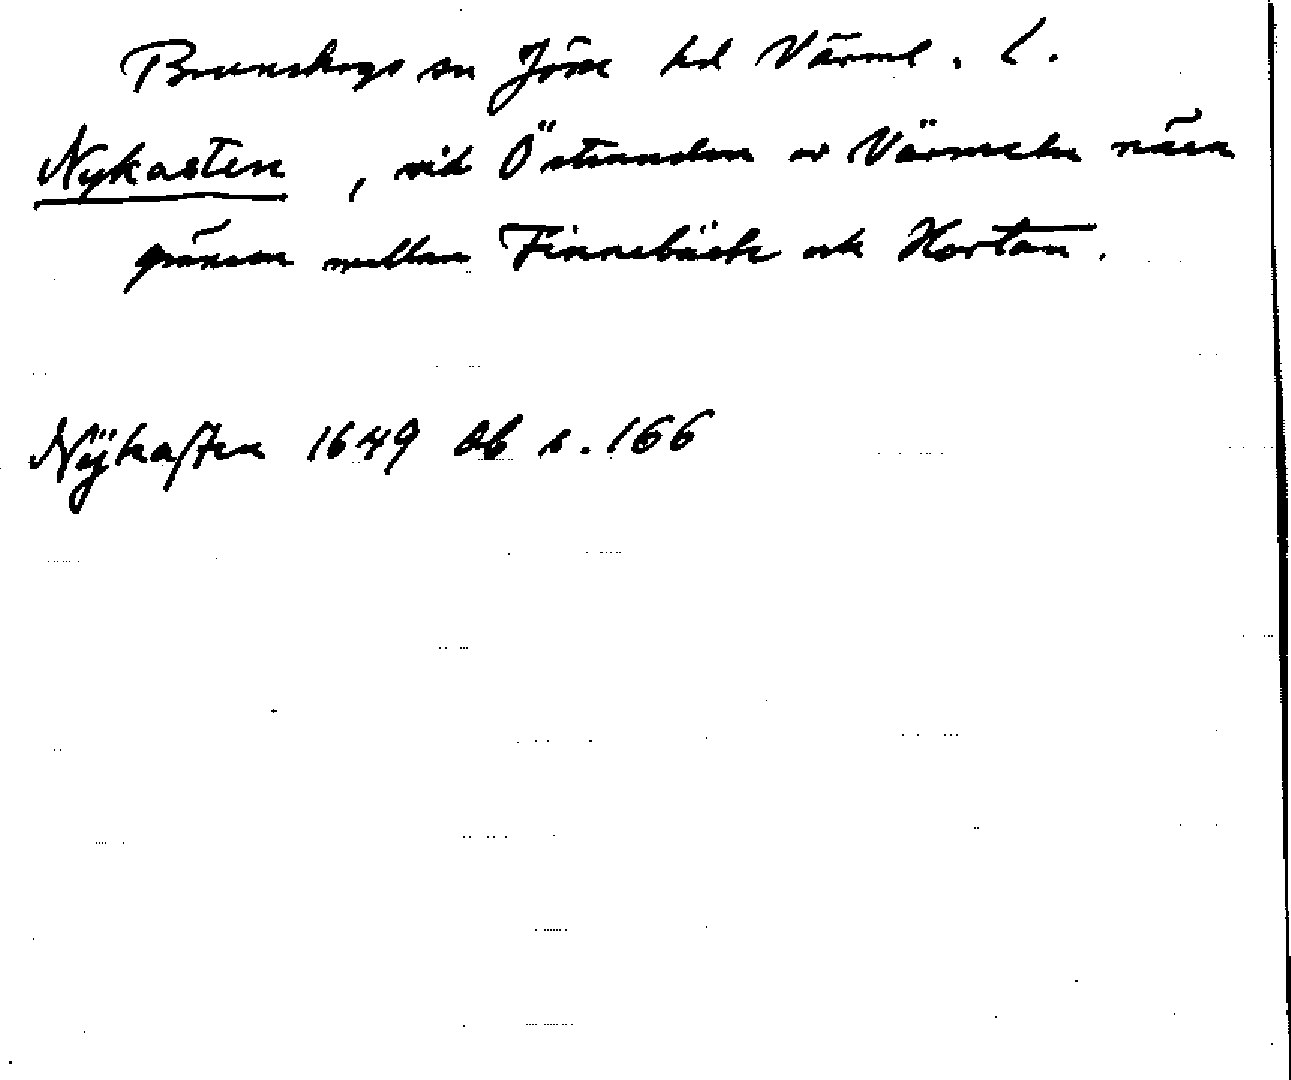 Brunskogs sn Jösse hd Värml. l.
Nykasten, vid Östranden av Värmeln nära
gränsen mellan Finnebäck och Hortan.
Nÿkasten 1649 Ab s. 166